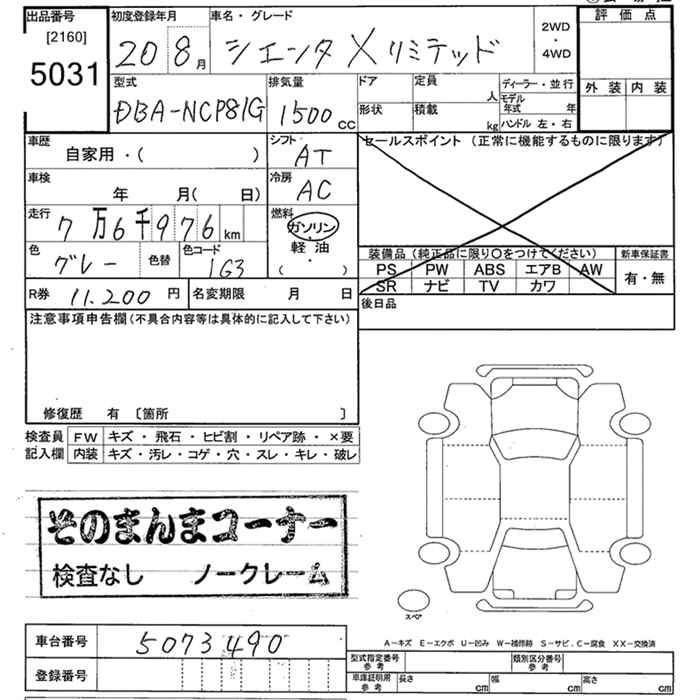 出品番号 初度登録年月 車名・グレード 評価点
[2160]
5031 20 8月 シエンタ Xリミテッド 2WD・4WD
外装 内装
型式 排気量 ドア 定員 人 ディーラー・並行
DBA-NCP81G 1500cc 形状 積載 kg モデル年式 年
ハンドル 左・右
車歴 シフト セールスポイント (正常に機能するものに限ります)
自家用・( ) AT
車検 冷房
年 月( 日) AC
走行 燃料
7万6千976km ガソリン
軽油
・
( )
色 色替 色コード
グレー 1G3
装備品 (純正品に限り○をつけてください) 新車保証書
PS PW ABS エアB AW 有・無
SR ナビ TV カワ
R券 11,200円 名変期限 月 日 後日品
注意事項申告欄(不具合内容等は具体的に記入して下さい)
修復歴 有 〔箇所 〕
検査員 FW キズ・飛石・ヒビ割・リペア跡・×要
記入欄 内装 キズ・汚レ・コゲ・穴・スレ・キレ・破レ
そのまんまコーナー
検査なし ノークレーム
スペア
車台番号 5073490
A-キズ E-エクボ U-凹み W-補修跡 S-サビ C-腐食 XX-交換済
登録番号
型式指定番号 参考 類別区分番号 参考
車庫証明用 参考 長さ cm 幅 cm 高さ cm